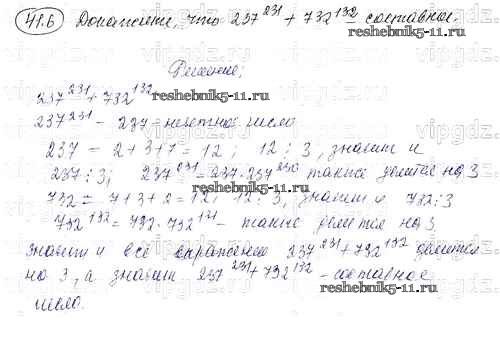 41.6 Докажите, что 237^231 + 732^132 составное.
Решение:
237^231 + 732^132
reshebnik5-11.ru
237^231 - 237 - нечетное число
237 = 2+3+7 = 12; 12 ⋮ 3, значит и
237 ⋮ 3; 237^231 = 237·237^230 также делится на 3
732 = 7+3+2 = 12; 12 ⋮ 3, значит и 732 ⋮ 3
732^132 = 732·732^131 - также делится на 3,
значит и все выражение 237^231 + 732^132 делится
на 3, а значит 237^231 + 732^132 - составное
число.
reshebnik5-11.ru
reshebnik5-11.ru
reshebnik5-11.ru
vipgdz